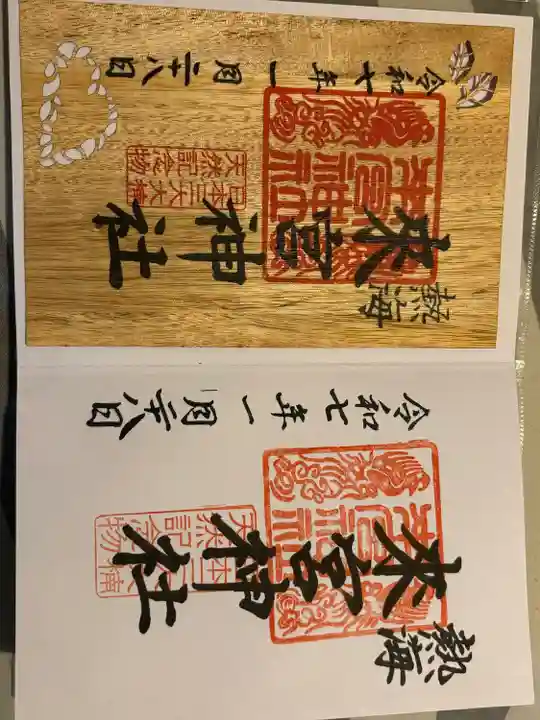 熱海
來宮神社
來宮神社
天然記念物
令和七年一月二十八日
熱海
來宮神社
來宮神社
天然記念物
令和七年一月二十八日